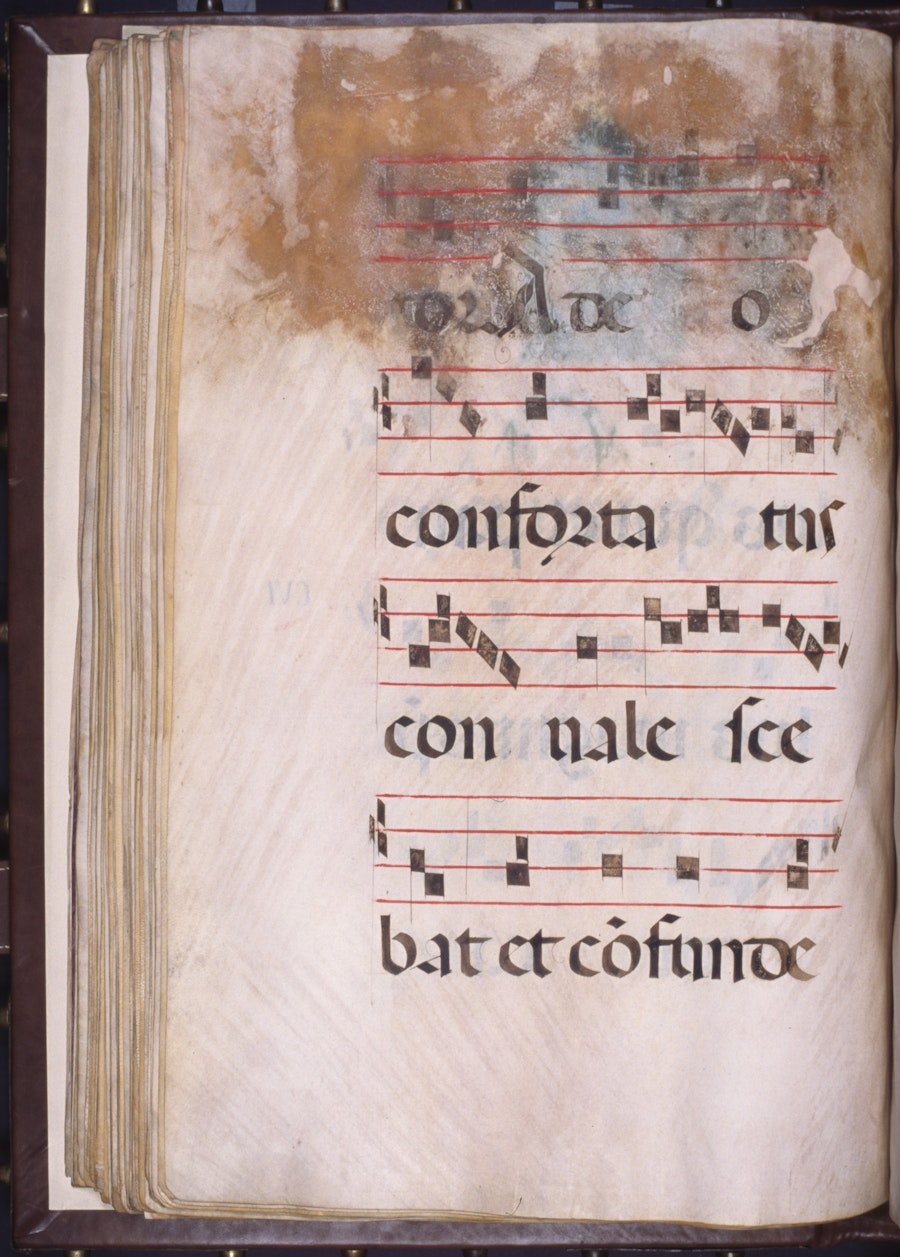 de o
conforta tus
con uale sce
bat et cōfunde